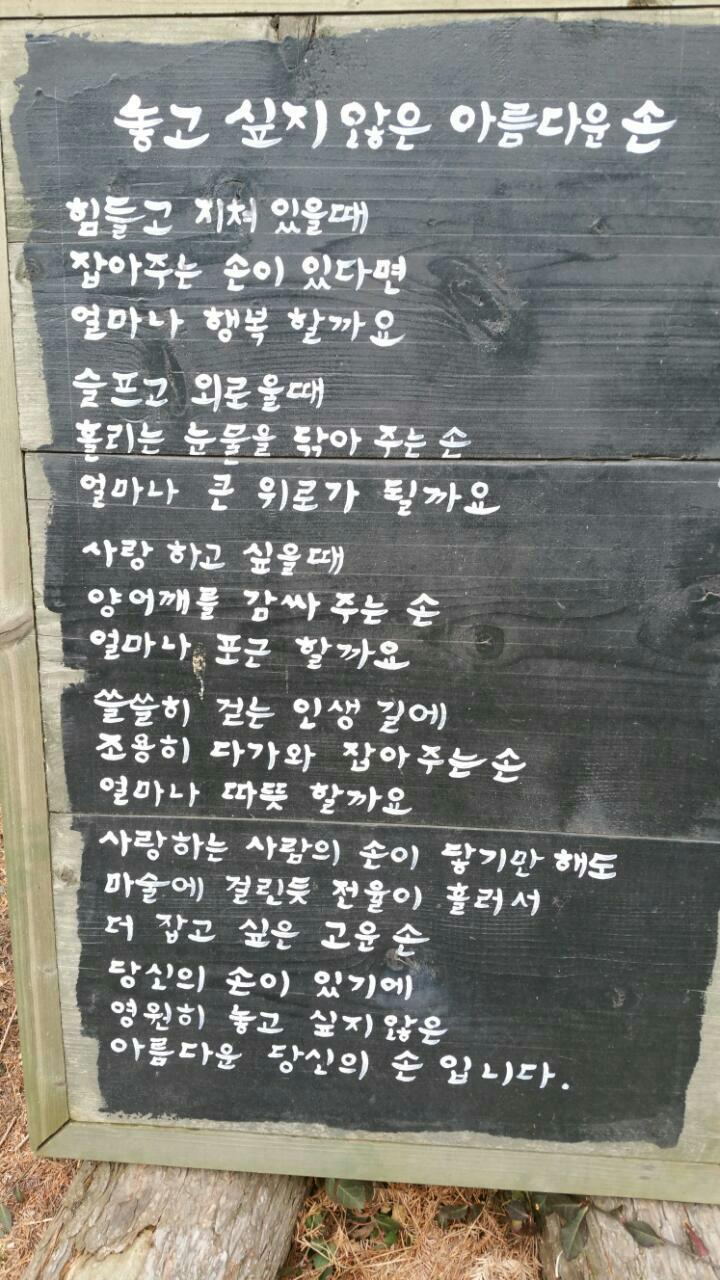 놓고 싶지 않은 아름다운 손
힘들고 지쳐 있을때
잡아주는 손이 있다면
얼마나 행복 할까요
슬프고 외로울때
흘리는 눈물을 닦아 주는 손
얼마나 큰 위로가 될까요
사랑 하고 싶을때
양어깨를 감싸 주는 손
얼마나 포근 할까요
쓸쓸히 걷는 인생 길에
조용히 다가와 잡아주는 손
얼마나 따뜻 할까요
사랑하는 사람의 손이 닿기만 해도
마술에 걸린듯 전율이 흘러서
더 잡고 싶은 고운 손
당신의 손이 있기에
영원히 놓고 싶지않은
아름다운 당신의 손 입니다.